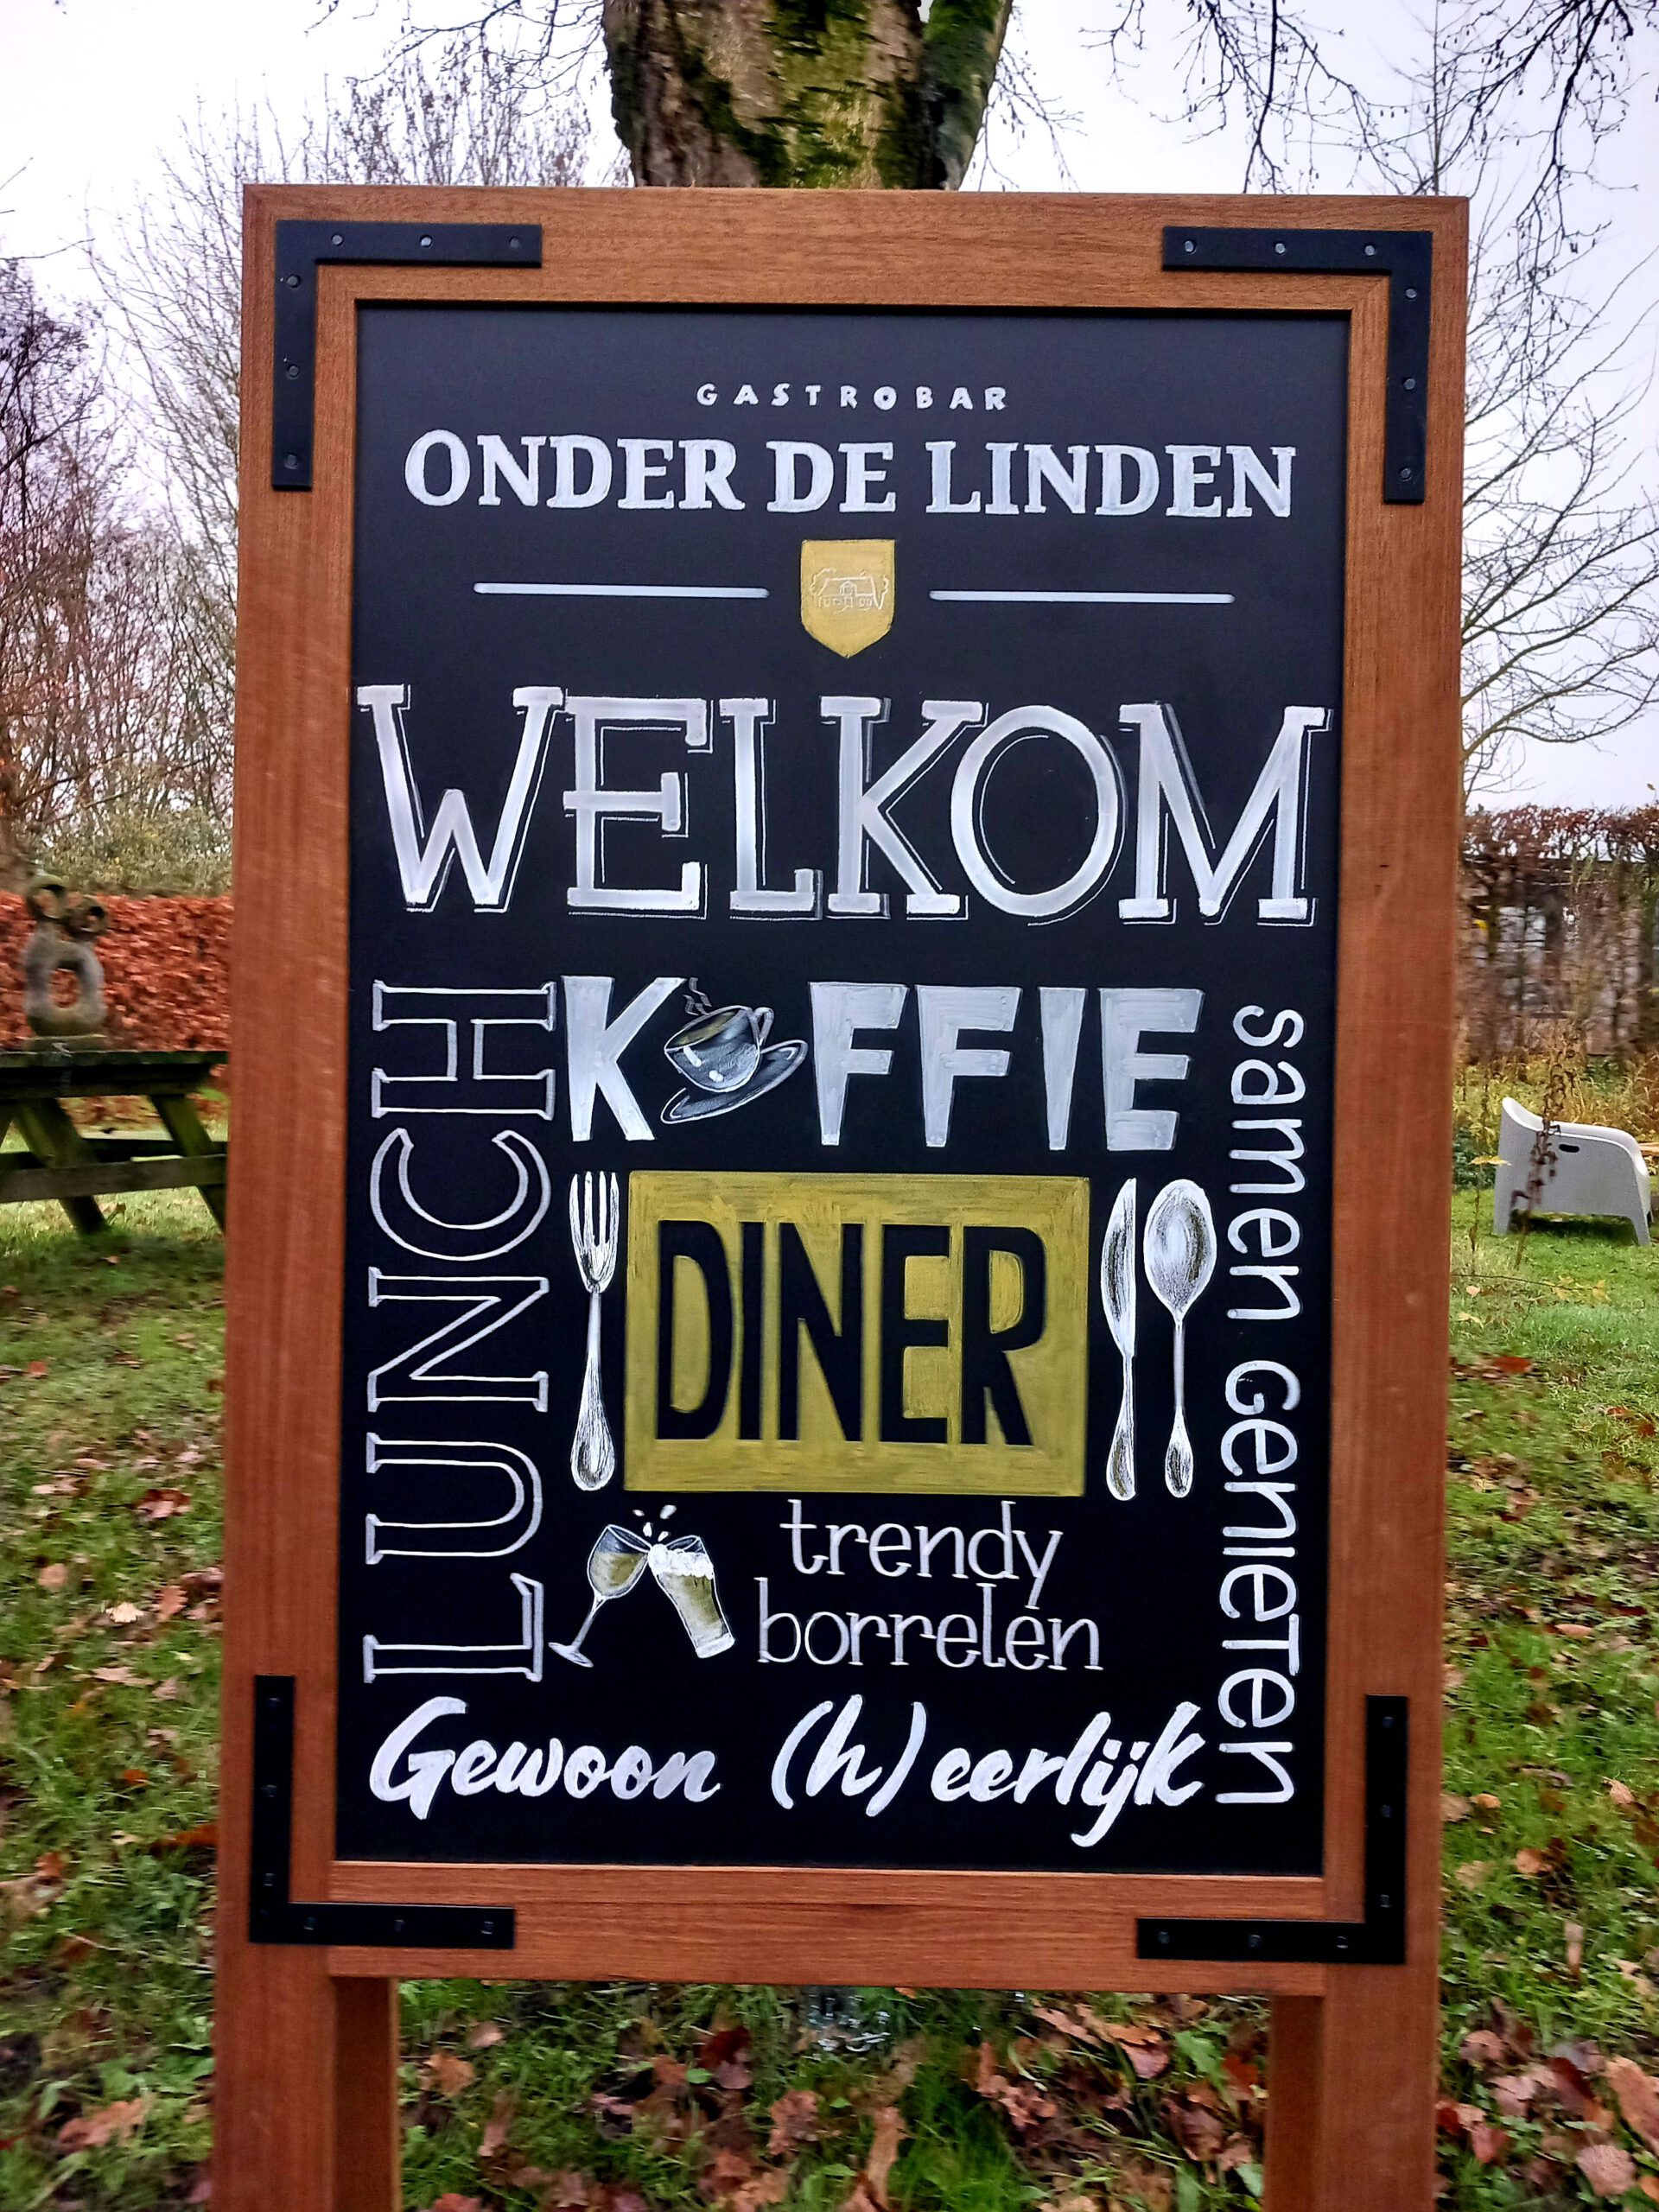 GASTROBAR
ONDER DE LINDEN
WELKOM
LUNCH
KOFFIE
DINER
samen genieten
trendy
borrelen
Gewoon (h)eerlijk